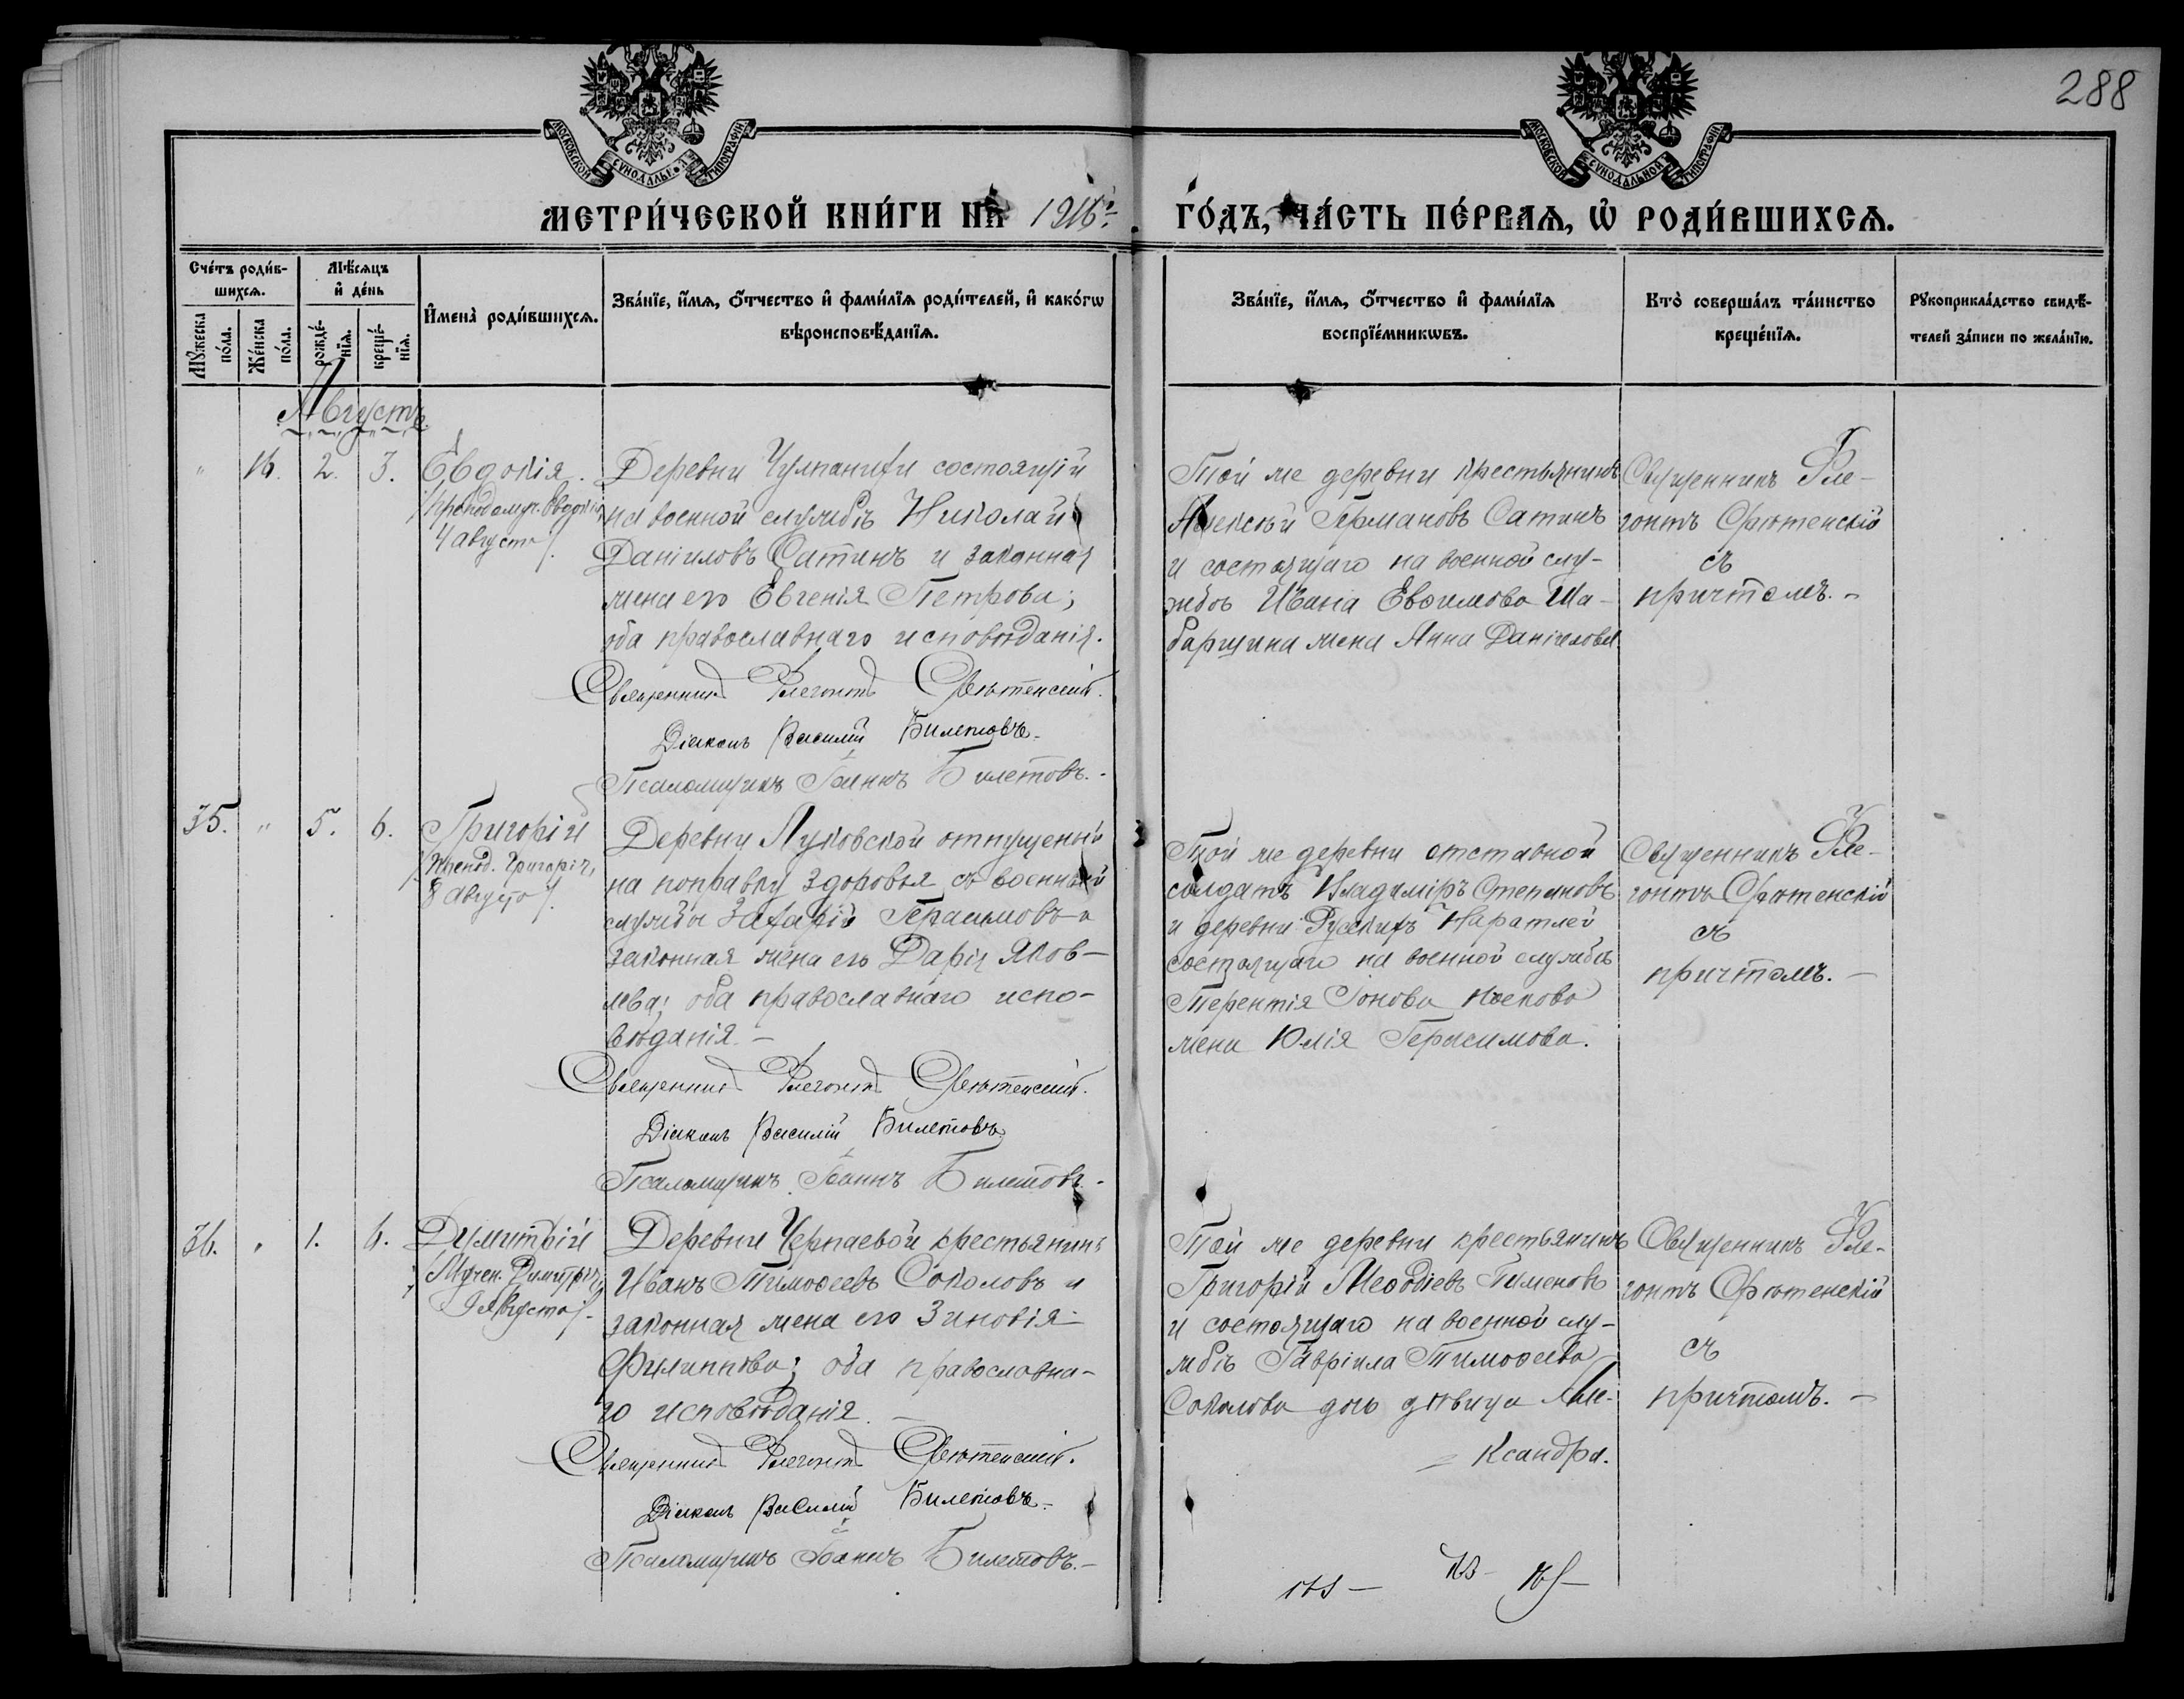 288
МОСКОВСКОЙ СѴНОДАЛЬНОЙ ТИПОГРАФІИ
МОСКОВСКОЙ СѴНОДАЛЬНОЙ ТИПОГРАФІИ
МЕТРИ́ЧЕСКОЙ КНИ́ГИ НА 1916й
ГО́ДЪ, ЧА́СТЬ ПЕ́РВАѦ, Ѡ҆ РОДИ́ВШИХСѦ.
Сче́тъ роди́в-
шихсѧ.
Мꙋ́жеска по́ла.
Же́нска по́ла.
Мѣ́сѧцъ
и҆ де́нь
рожде́-
нїѧ.
креще́-
нїѧ.
И҆мена̀ роди́вшихсѧ.
Зва́нїе, и҆́мѧ, ѻ҆́тчество и҆ фами́лїѧ роди́телей, и҆ како́гѡ
вѣроисповѣ́данїѧ.
Зва́нїе, и҆́мѧ, ѻ҆́тчество и҆ фами́лїѧ
воспрїе́мникѡвъ.
Кто̀ соверша́лъ та́инство
креще́нїѧ.
Рꙋкоприкла́дство свидѣ́-
телей за́писи по жела́нїю.
Августъ
" 16. 2. 3.
Евдокія.
/преподомуч. Евдокіи,
4 августа/.
Деревни Чулпанихи состоящій
на военной службѣ Николай
Даніиловъ Сатинъ и законная
жена его Евгенія Петрова;
оба православнаго исповѣданія.
Священникъ Флегонтъ Срѣтенскій.
Діаконъ Василій Билетовъ.
Псаломщикъ Іоаннъ Билетовъ.-
Той же деревни крестьянинъ
Алексѣй Германовъ Сатинъ
и состоящаго на военной слу-
жбѣ Ивана Евѳимова Ша-
баршина жена Анна Даніилова
Священникъ Фле-
гонтъ Срѣтенскій
съ
причтомъ.-
35. " 5. 6.
Григорій
/препод. Григорія,
8 августа/.
Деревни Луковской отпущеный
на поправку здоровья съ военной
службы Захарій Герасимовъ и
законная жена его Дарія Яков-
лева; оба православнаго испо-
вѣданія.-
Священникъ Флегонтъ Срѣтенскій.
Діаконъ Василій Билетовъ
Псаломщикъ Іоаннъ Билетовъ.-
Той же деревни отставной
солдатъ Владиміръ Степановъ
и деревни Русскихъ Наратлей
состоящаго на военной службѣ
Терентія Іонова Носкова
жена Юлія Герасимова.
Священникъ Фле-
гонтъ Срѣтенскій
съ
причтомъ.-
36. " 1. 6.
Димитрій
/Мучен. Димитрія,
9 августа/.
Деревни Черпаевой крестьянинъ
Иванъ Тимоѳеевъ Соколовъ и
законная жена его Зиновія
Филиппова; оба православна-
го исповѣданія.-
Священникъ Флегонтъ Срѣтенскій.
Діаконъ Василій Билетовъ.
Псаломщикъ Іоаннъ Билетовъ.-
Той же деревни крестьянинъ
Григорій Меѳодіевъ Пименовъ
и состоящаго на военной слу-
жбѣ Гавріила Тимоѳеева
Соколова дочь дѣвица Але-
ксандра.
Священникъ Фле-
гонтъ Срѣтенскій
съ
причтомъ.-